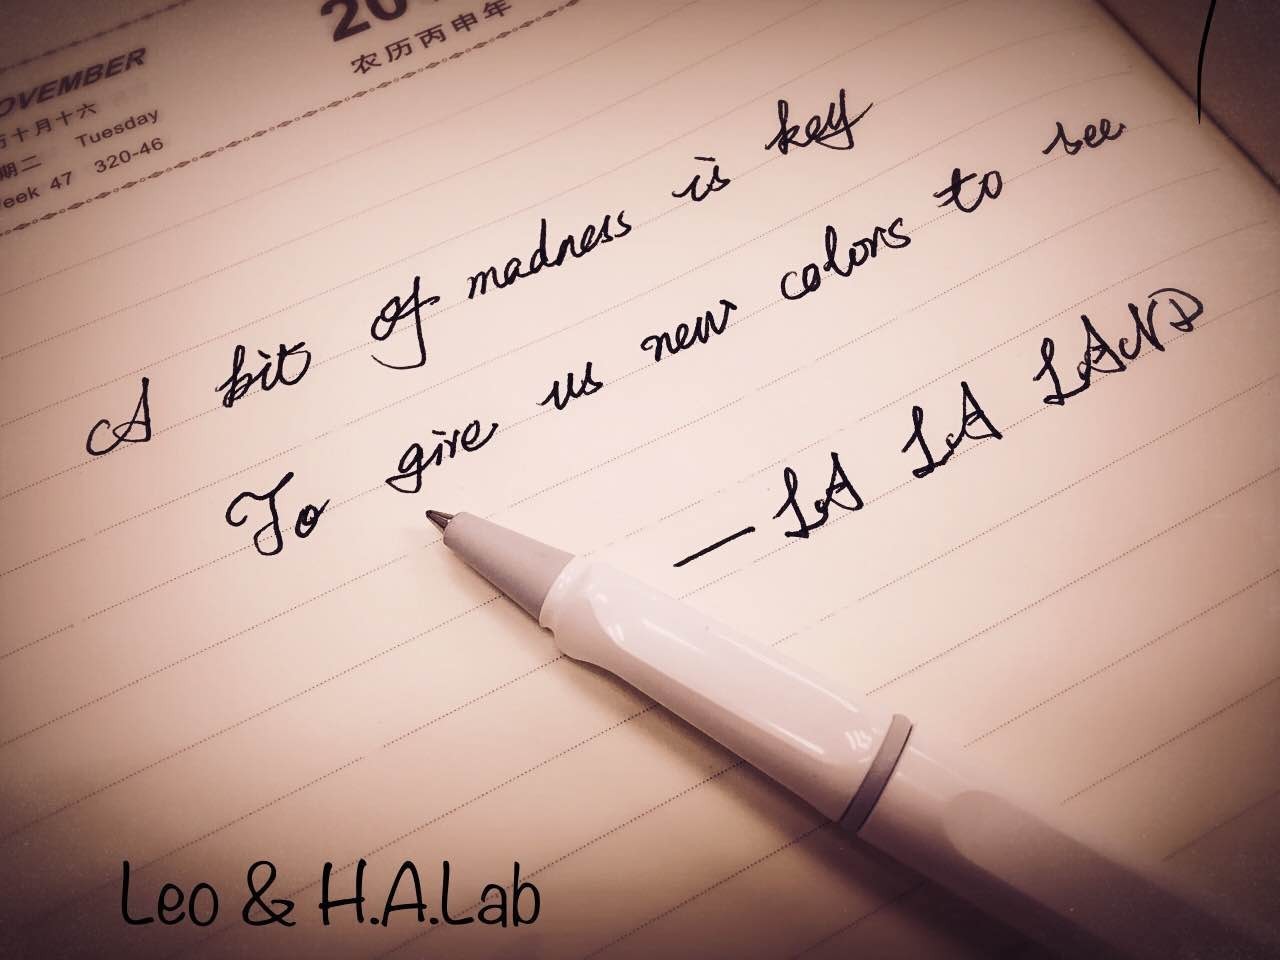 20
农历丙申年
OVEMBER
十月十六
期二 Tuesday
eek 47 320-46
A bit of madness is key
To give us new colors to see
— LA LA LAND
Leo & H.A.Lab